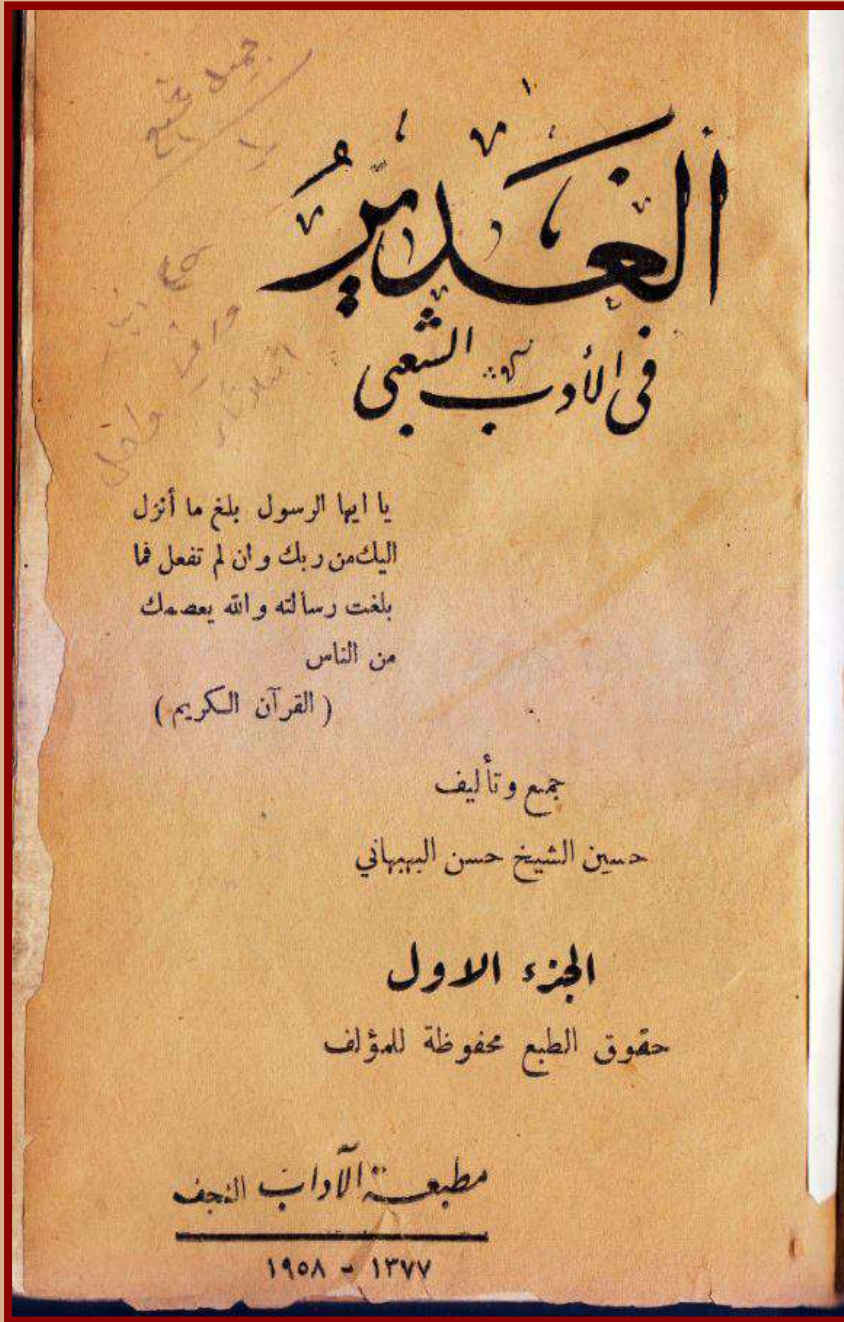 جميل
الغَدِيرُ
في الأدب الشعبي
يا ايها الرسول بلغ ما أنزل
اليك من ربك وان لم تفعل فما
بلغت رسالته والله يعصمك
من الناس
( القرآن الكريم )
جمع وتأليف
حسين الشيخ حسن البهبهاني
الجزء الاول
حقوق الطبع محفوظة للمؤلف
مطبعة الآداب النجف
١٣٧٧ - ١٩٥٨